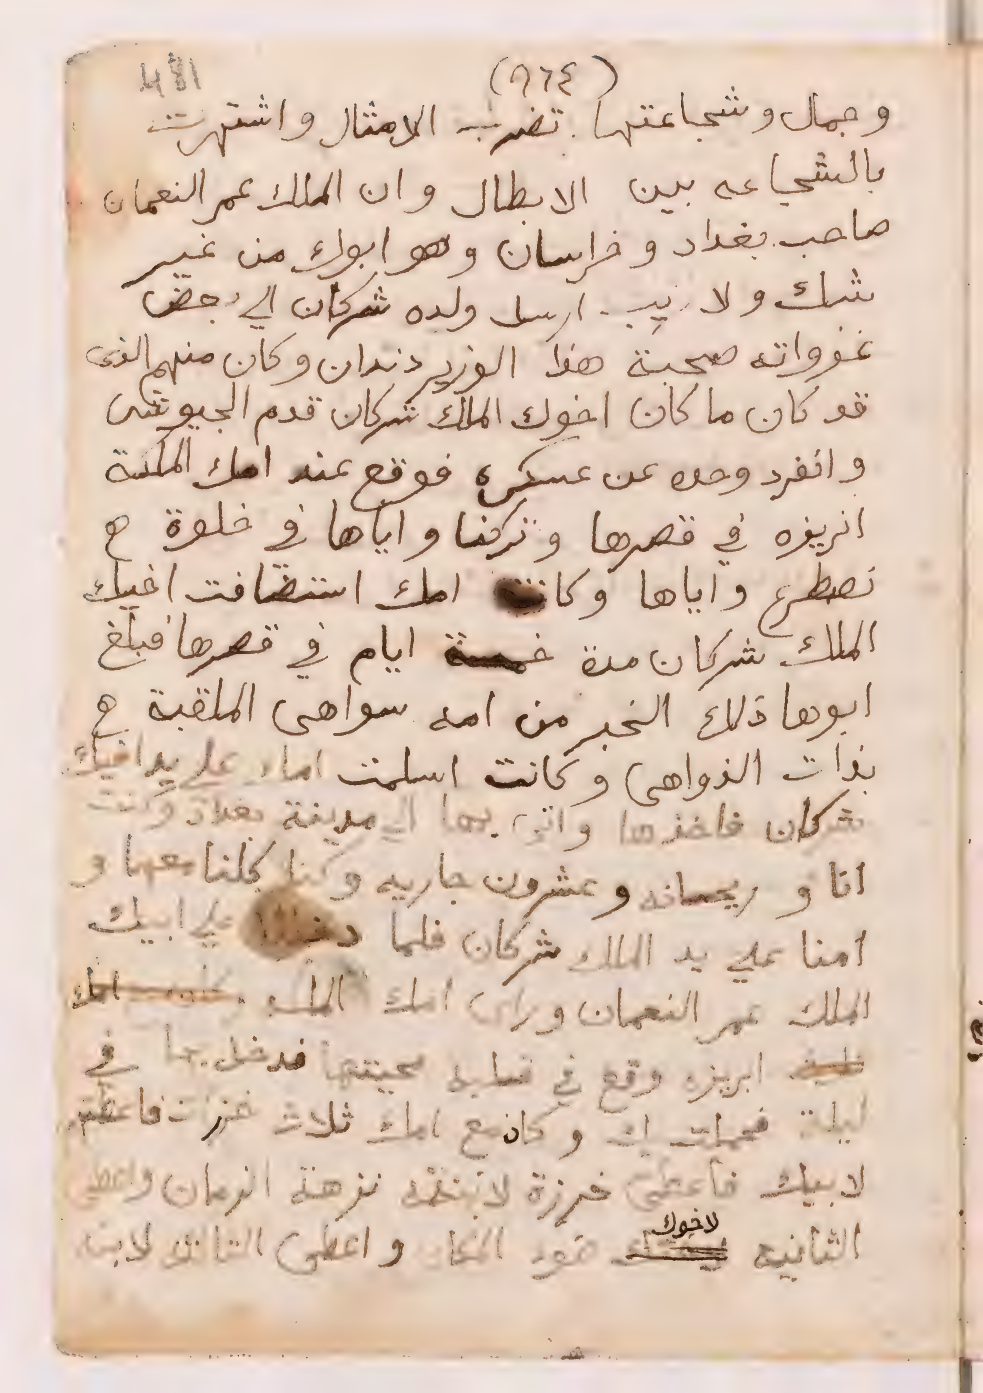 (٩٦٤)
وجمال وشجاعتها تضرب الامثال واشتهرت
بالشجاعه بين الابطال وان الملك عمر النعمان
صاحب بغداد وخراسان وهو ابوك من غير
شك ولا ريب ارسل ولده شركان الي بعض
غزواته صحبة هذا الوزير دندان وكان منهم الذى
قد كان ما كان اخوك الملك شركان قدم الجيوش
وانفرد وحده عن عسكره فوقع عند امك الملكة
ابريزه في قصرها وتركنا واياها في خلوة
نصطرع واياها وكانت امك استضافت اخيك
الملك شركان مدة خمسة ايام في قصرها فبلغ
ابوها ذلك الخبر من امه سواهى الملقبة
بذات الدواهى وكانت اسلمت امك على يد اخيك
شركان فاخذها واتى بها الي مدينة بغداد وكنت
انا وريحانه وعشرون جاريه وكنا كلنا معها و
امنا علي يد الملك شركان فلما دخلنا علي ابيك
الملك عمر النعمان وراى امك الملكه
ابريزه وقع في قلبه محبتها فدخل بها في
ليلة فحملت بك وكان مع امك ثلاث خرزات فاعطتهم
لابيك فاعطى خرزة لابنته نزهة الزمان واعطى
الثانيه لاخوك ضوء المكان واعطى الثالثه لابنه